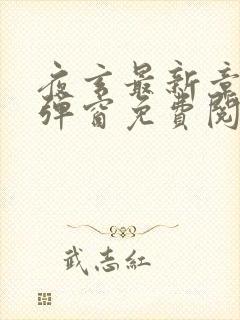 夜玄最新章
彈窗免費閱
武志紅